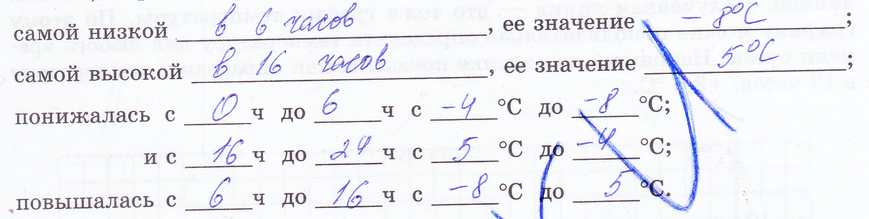 самой низкой в 6 часов, ее значение -8°C;
самой высокой в 16 часов, ее значение 5°C;
понижалась с 0 ч до 6 ч с -4 °C до -8 °C;
и с 16 ч до 24 ч с 5 °C до -4 °C;
повышалась с 6 ч до 16 ч с -8 °C до 5 °C.